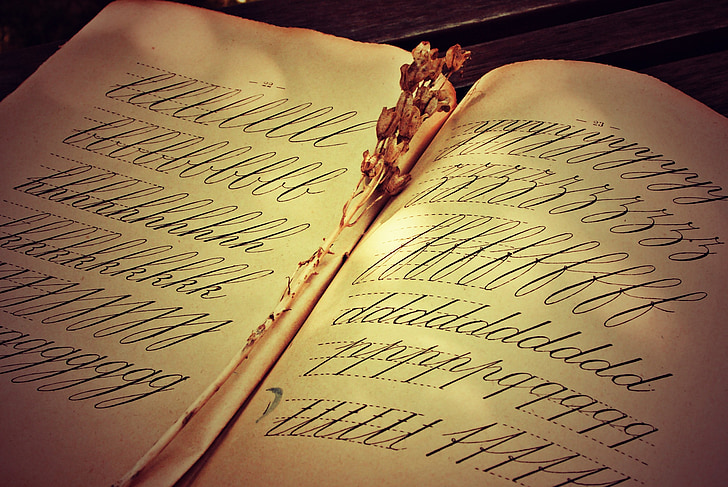 – 22 –
lllllllllllll
bbbbbbbbbbbb
hhhhhhhhhhhh
kkkkkkkkkk
jjjjjjjjjj
ggggggggg
– 23 –
yyyyyyyyyyyyy
zzzzzzzzzzzz
ffffffffffff
ddddddddddddd
ppppppqqqqqq
ttttttt